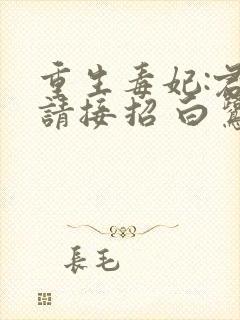 重生毒妃:君
請接招 白鷺
長毛